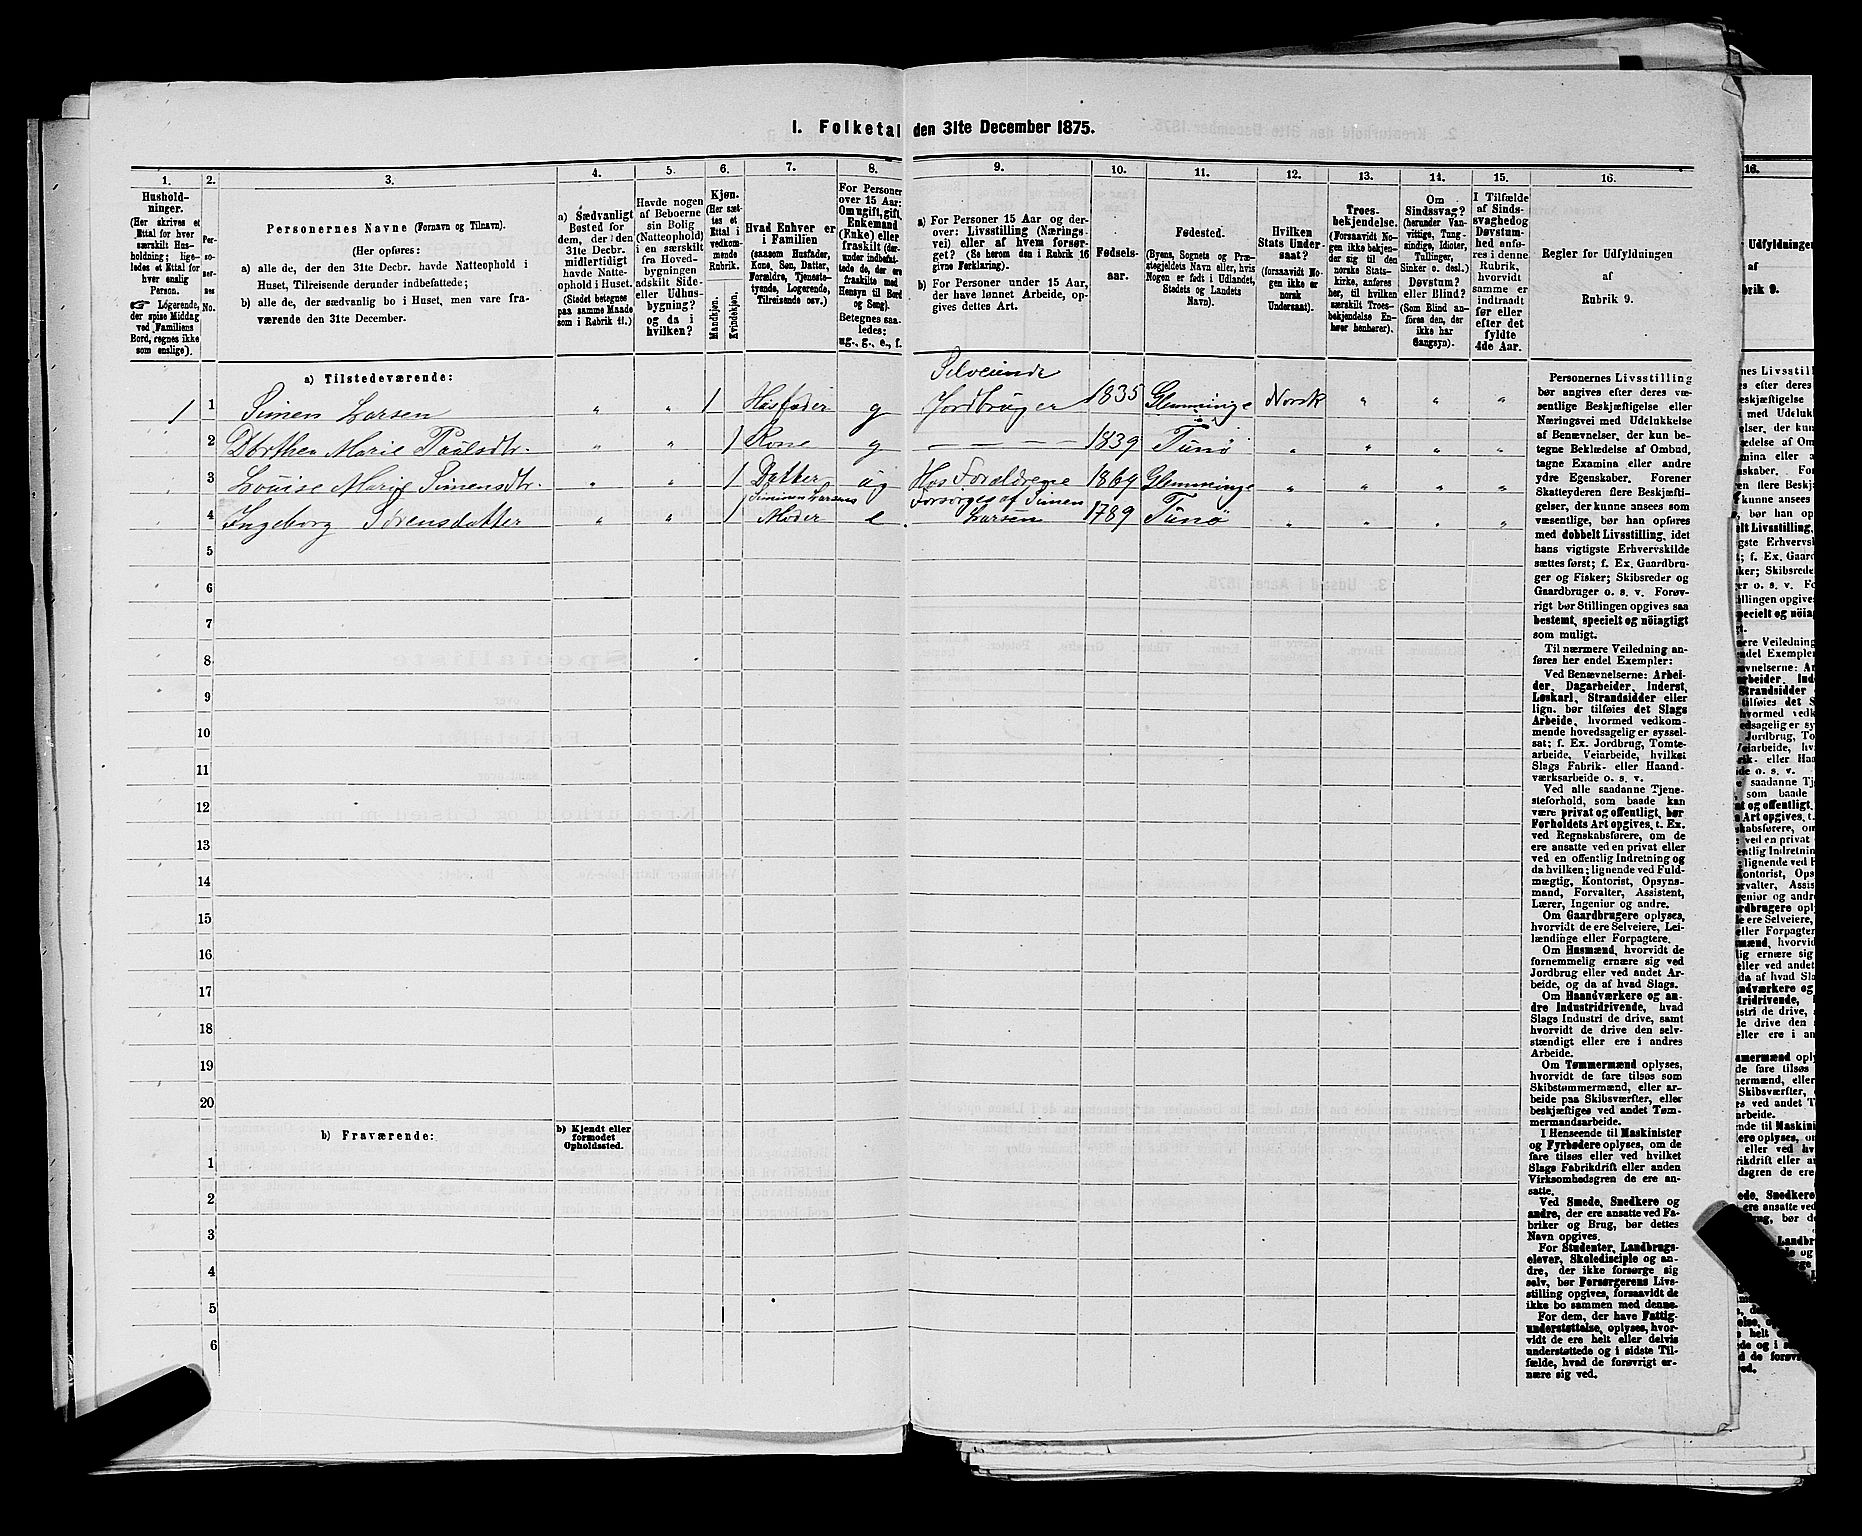 I. Folketal den 31te December 1875.
1.
Hushold-
ninger.
(Her skrives et
Ettal for hver
særskilt Hus-
holdning; lige-
ledes et Ettal for
hver enslig
Person.
☞ Logerende,
der spise Middag
ved Familiens
Bord, regnes ikke
som enslige).
2.
Per-
so-
ner-
nes
No.
3.
Personernes Navne (Fornavn og Tilnavn).
(Her opføres:
a) alle de, der den 31te Decbr. havde Natteophold i
Huset, Tilreisende derunder indbefattede;
b) alle de, der sædvanlig bo i Huset, men vare fra-
værende den 31te December.
4.
a) Sædvanligt
Bosted for
dem, der den
31te Decbr.
midlertidigt
havde Natte-
ophold i Huset.
(Stedet betegnes
paa samme Maade
som i Rubrik 11.)
5.
Havde nogen
af Beboerne
sin Bolig
(Natteophold)
i en særskilt
fra Hoved-
bygningen
adskilt Side-
eller Udhus-
bygning?
og da i
hvilken?
6.
Kjøn.
(Her sæt-
tes et
Ettal i
vedkom-
mende
Rubrik.
Mandkjøn.
Kvindekjøn.
7.
Hvad Enhver er
i Familien
(saasom Husfader,
Kone, Søn, Datter,
Forældre, Tjeneste-
tyende, Logerende,
Tilreisende osv.)
8.
For Personer
over 15 Aar:
Om ugift, gift,
Enkemand
(Enke) eller
fraskilt (der-
under indbefat-
tede de, der ere
fraskilte med
Hensyn til Bord
og Seng).
Betegnes saa-
ledes:
ug., g., e., f.
9.
a) For Personer 15 Aar og der-
over: Livsstilling (Nærings-
vei) eller af hvem forsør-
get? (Se herom den i Rubrik 16
givne Forklaring).
b) For Personer under 15 Aar,
der have lønnet Arbeide, op-
gives dettes Art.
10.
Fødsels-
aar.
11.
Fødested.
(Byens, Sognets og Præ-
stegjeldets Navn eller, hvis
Nogen er født i Udlandet,
Stedets og Landets
Navn).
12.
Hvilken
Stats Under-
saat?
(forsaavidt No-
gen ikke er
norsk
Undersaat).
13.
Troes-
bekjendelse.
(Forsaavidt No-
gen ikke bekjen-
der sig til den
norske Stats-
kirke, anføres
her, til hvilken
særskilt Troes-
bekjendelse En-
hver henhører).
14.
Om
Sindssvag?
(herunder Van-
vittige, Tung-
sindige, Idioter,
Tullinger,
Sinker o. desl.)
Døvstum?
eller Blind?
(Som Blind an-
føres den, der
ikke har
Gangsyn).
15.
I Tilfælde
af Sinds-
svaghed og
Døvstum-
hed anfø-
res i denne
Rubrik,
hvorvidt
samme er
indtraadt
før eller
efter det
fyldte
4de Aar.
16.
Regler for Udfyldningen
af
Rubrik 9.
a) Tilstedeværende:
1 1 Simen Larsen " " 1 Husfader g Selveiende Jordbruger 1835 Glemminge Norsk " " "
2 Dorthea Marie Paulsdtr. " " 1 Kone g — — — — 1839 Tunø " " " "
3 Louise Marie Simensdtr. " " 1 Datter ug Hos Forældrene 1869 Glemminge " " " "
4 Ingeborg Sørensdatter " " 1 Simen Larsens Moder e Forsørges af Simen Larsen 1789 Tunø " " " "
5
6
7
8
9
10
11
12
13
14
15
16
17
18
19
20
b) Fraværende:
b) Kjendt eller
formodet
Opholdssted.
1
2
3
4
5
6
Personernes Livsstilling
bør angives efter deres væ-
sentlige Beskjæftigelse eller
Næringsvei med Udelukkelse
af Benævnelser, der kun be-
tegne Beklædelse af Ombud,
tagne Examina eller andre
ydre Egenskaber. Forener
Skatteyderen flere Beskjæfti-
gelser, der kunne ansees som
væsentlige, bør han opføres
med dobbelt Livsstilling, idet
hans vigtigste Erhvervskilde
sættes først; f. Ex. Gaardbru-
ger og Fisker; Skibsreder og
Gaardbruger o. s. v. Forøv-
rigt bør Stillingen opgives saa
bestemt, specielt og nøiagtigt
som muligt.
Til nærmere Veiledning an-
føres her endel Exempler:
Ved Benævnelserne: Arbei-
der, Dagarbeider, Inderst,
Løskarl, Strandsidder eller
lign. bør tilføies det Slags
Arbeide, hvormed vedkom-
mende hovedsagelig er syssel-
sat; f. Ex. Jordbrug, Tomte-
arbeide, Veiarbeide, hvilket
Slags Fabrik- eller Haand-
værksarbeide o. s. v.
Ved alle saadanne Tjene-
steforhold, som baade kan
være privat og offentligt, bør
Forholdets Art opgives, t. Ex.
ved Regnskabsførere, om de
ere ansatte ved en privat eller
ved en offentlig Indretning og
da hvilken; lignende ved Fuld-
mægtig, Kontorist, Opsyns-
mand, Forvalter, Assistent,
Lærer, Ingeniør og andre.
Om Gaardbrugere oplyses,
hvorvidt de ere Selveiere, Lei-
lændinge eller Forpagtere.
Om Husmænd, hvorvidt de
fornemmelig ernære sig ved
Jordbrug eller ved andet Ar-
beide, og da af hvad Slags.
Om Haandværkere og an-
dre Industridrivende, hvad
Slags Industri de drive, samt
hvorvidt de drive den selv-
stændigt eller ere i andres
Arbeide.
Om Tømmermænd oplyses,
hvorvidt de fare tilsøs som
Skibstømmermænd, eller ar-
beide paa Skibsværfter, eller
beskjæftiges ved andet Tøm-
mermandsarbeide.
I Henseende til Maskinister
og Fyrbødere oplyses, om de
fare tilsøs eller ved hvilket
Slags Fabrikdrift eller anden
Virksomhedsgren de ere an-
satte.
Ved Smede, Snedkere og
andre, der ere ansatte ved Fa-
briker og Brug, bør dettes
Navn opgives.
For Studenter, Landbrugs-
elever, Skoledisciple og an-
dre, der ikke forsørge sig
selv, bør Forsørgerens Livs-
stilling opgives, forsaavidt de
ikke bo sammen med denne.
For dem, der have Fattig-
understøttelse, oplyses, hvor-
vidt de ere helt eller delvis
understøttede og i sidste Til-
fælde, hvad de forøvrigt er-
nære sig ved.